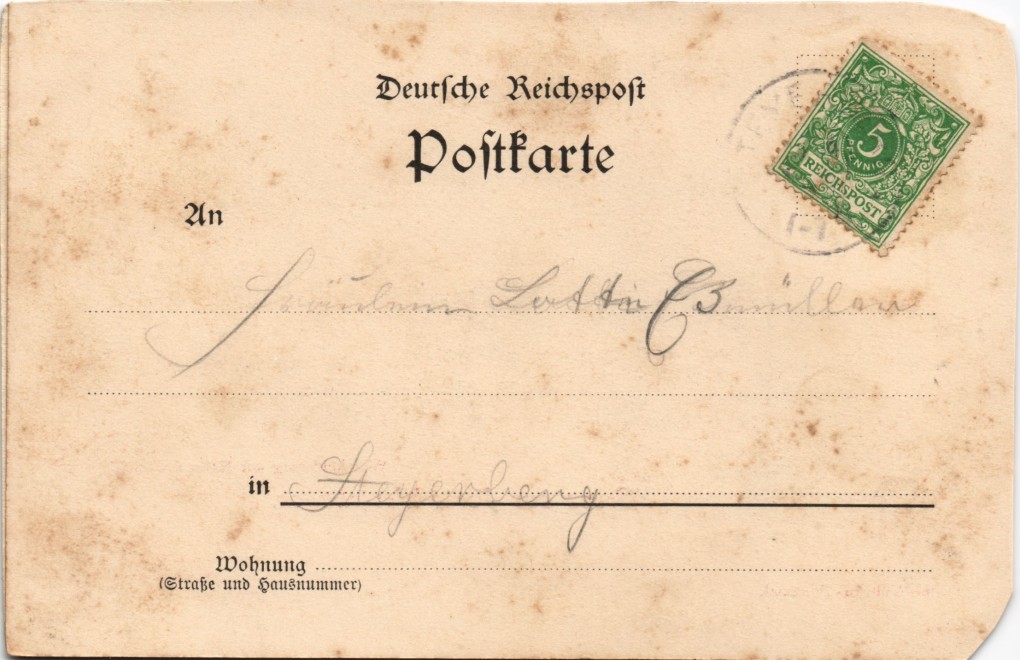 Deutsche Reichspost
Postkarte
5
PFENNIG
REICHSPOST
An
Fräulein Lotte
in Steyerberg
Wohnung
(Straße und Hausnummer)